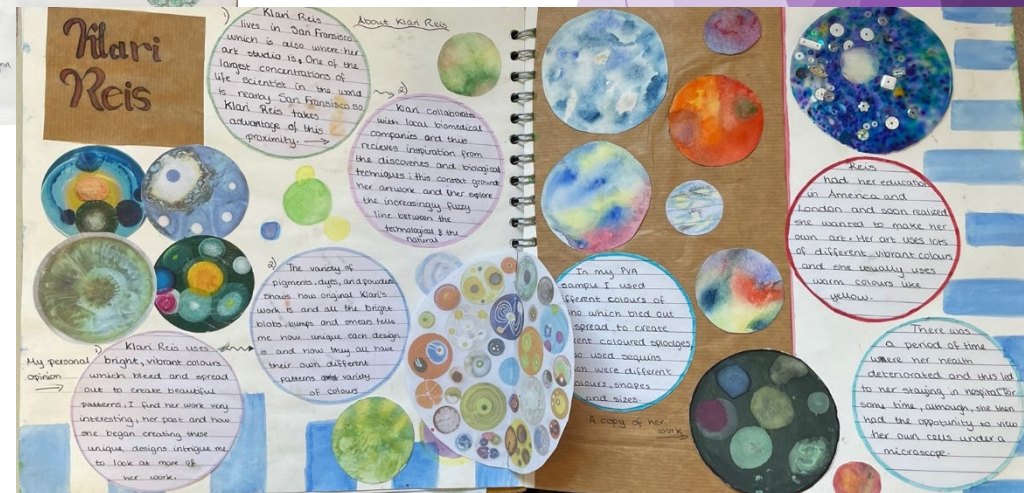 Klari
Reis
About Klari Reis
1)
Klari Reis
lives in San Fransisco
which is also where her
art studio is. One of the
largest concentrations of
life scientist in the world
is nearby San Fransisco so
Klari Reis takes
advantage of this
proximity.
2)
Klari collaborates
with local biomedical
companies and thus
recieves inspiration from
the discoveries and biological
techniques; this context grounds
her artwork and ther explore
the increasingly fuzzy
line between the
technological & the
natural
2)
The variety of
pigments, dyes, and powders
shows how original Klari's
work is and all the bright
blobs, bumps and smears tells
me how unique each design
is and how they all have
their own different
patterns and variety
of colours
My personal
opinion
1)
Klari Reis uses
bright, vibrant colours
which bleed and spread
out to create beautiful
patterns. I find her work very
interesting, her past and how
she began creating these
unique designs intrigue me
to look at more of
her work.
In my PVA
sample I used
fferent colours of
which bled out
spread to create
rent coloured splodges,
so used sequins
ch were different
olours, shapes
and sizes.
A copy of her
work
Reis
had her education
in America and
London and soon realized
she wanted to make her
own art. Her art uses lots
of different vibrant colours
and she usually uses
warm colours like
yellow.
There was
a period of time
where her health
deteriorated and this led
to her staying in hospital for
some time, although, she then
had the oppotunity to view
her own cells under a
microscope.